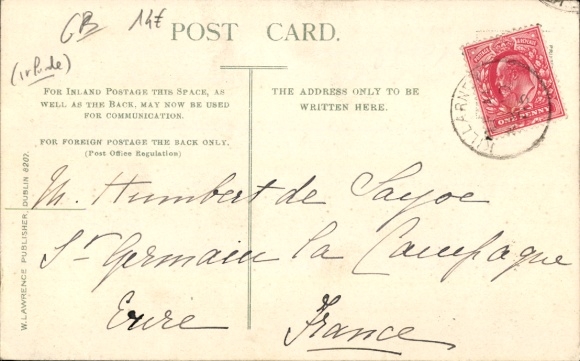 GB 14F
POST CARD.
(Irlande)
FOR INLAND POSTAGE THIS SPACE, AS
WELL AS THE BACK, MAY NOW BE USED
FOR COMMUNICATION.
FOR FOREIGN POSTAGE THE BACK ONLY.
(Post Office Regulation)
THE ADDRESS ONLY TO BE
WRITTEN HERE.
POSTAGE REVENUE
ONE PENNY
KILLARNEY
M. Humbert de Sayve
St Germain la Campagne
Eure France
W. LAWRENCE PUBLISHER, DUBLIN 6207.